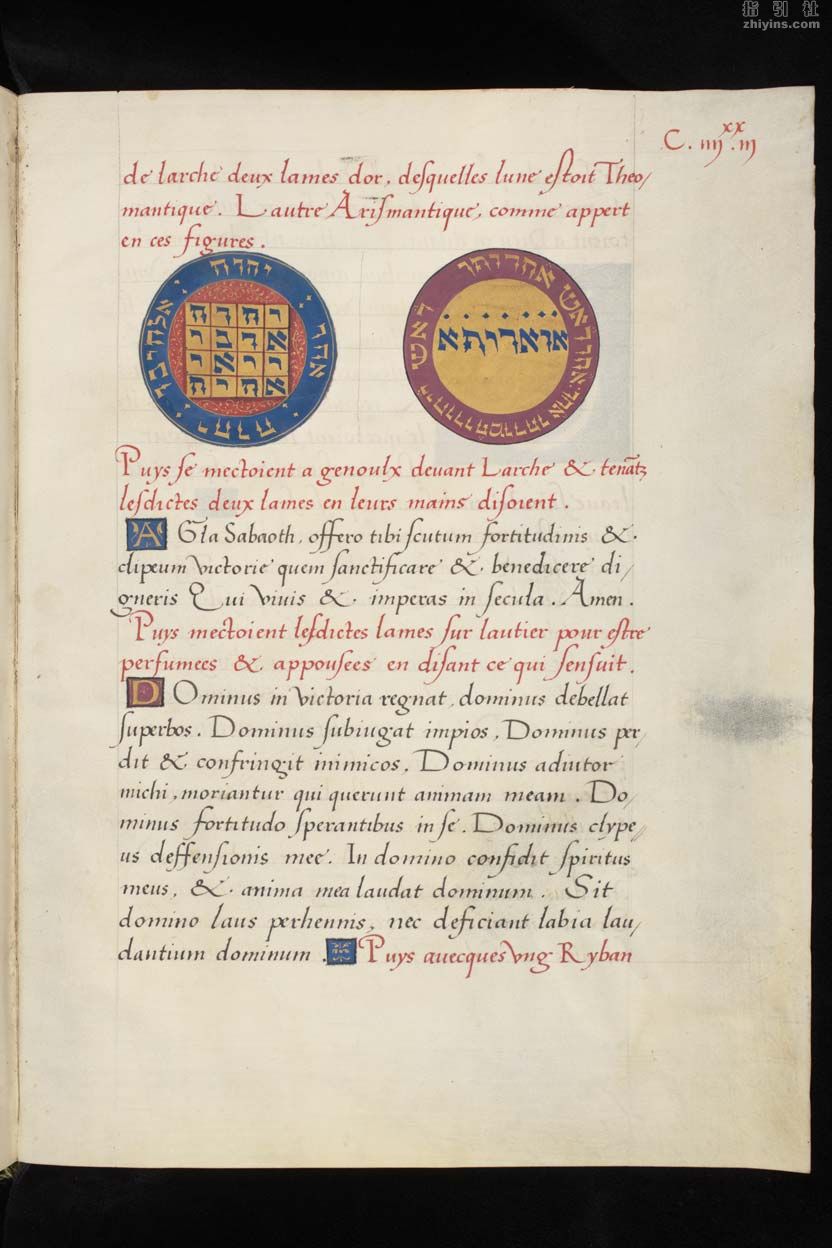 指引社
zhiyins.com
C. iiij xx .iij
de larche deux lames dor, desquelles lune estoit Theo/
mantique. Lautre Arismantique, comme appert
en ces figures.
יהוה
אוארותא
Puys se mectoient a genoulx devant Larche & tenātz
lesdictes deux lames en leurs mains disoient.
AGla Sabaoth, offero tibi scutum fortitudinis &.
clipeum victorie quem sanctificare &. benedicere di/
gneris Qui vivis &. imperas in secula. Amen.
Puys mectoient lesdictes lames sur lautier pour estre
perfumees & appousees en disant ce qui sensuit.
DOminus in victoria regnat, dominus debellat
superbos. Dominus subiugat impios, Dominus per/
dit & confringit inimicos. Dominus adiutor
michi, moriantur qui querunt animam meam. Do/
minus fortitudo sperantibus in se. Dominus clype//
us deffensionis mee. In domino confidit spiritus
meus, &. anima mea laudat dominum. Sit
domino laus perhennis, nec deficiant labia lau/
dantium dominum. Puys avecques vng Ryban